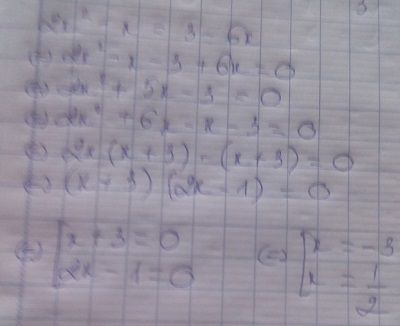 2x² - x = 3 - 6x
(=) 2x² - x - 3 + 6x = 0
(=) 2x² + 5x - 3 = 0
(=) 2x² + 6x - x - 3 = 0
(=) 2x (x + 3) - (x + 3) = 0
(=) (x + 3) (2x - 1) = 0
(=) [x + 3 = 0 (=) [x = -3
2x - 1 = 0 x = 1/2